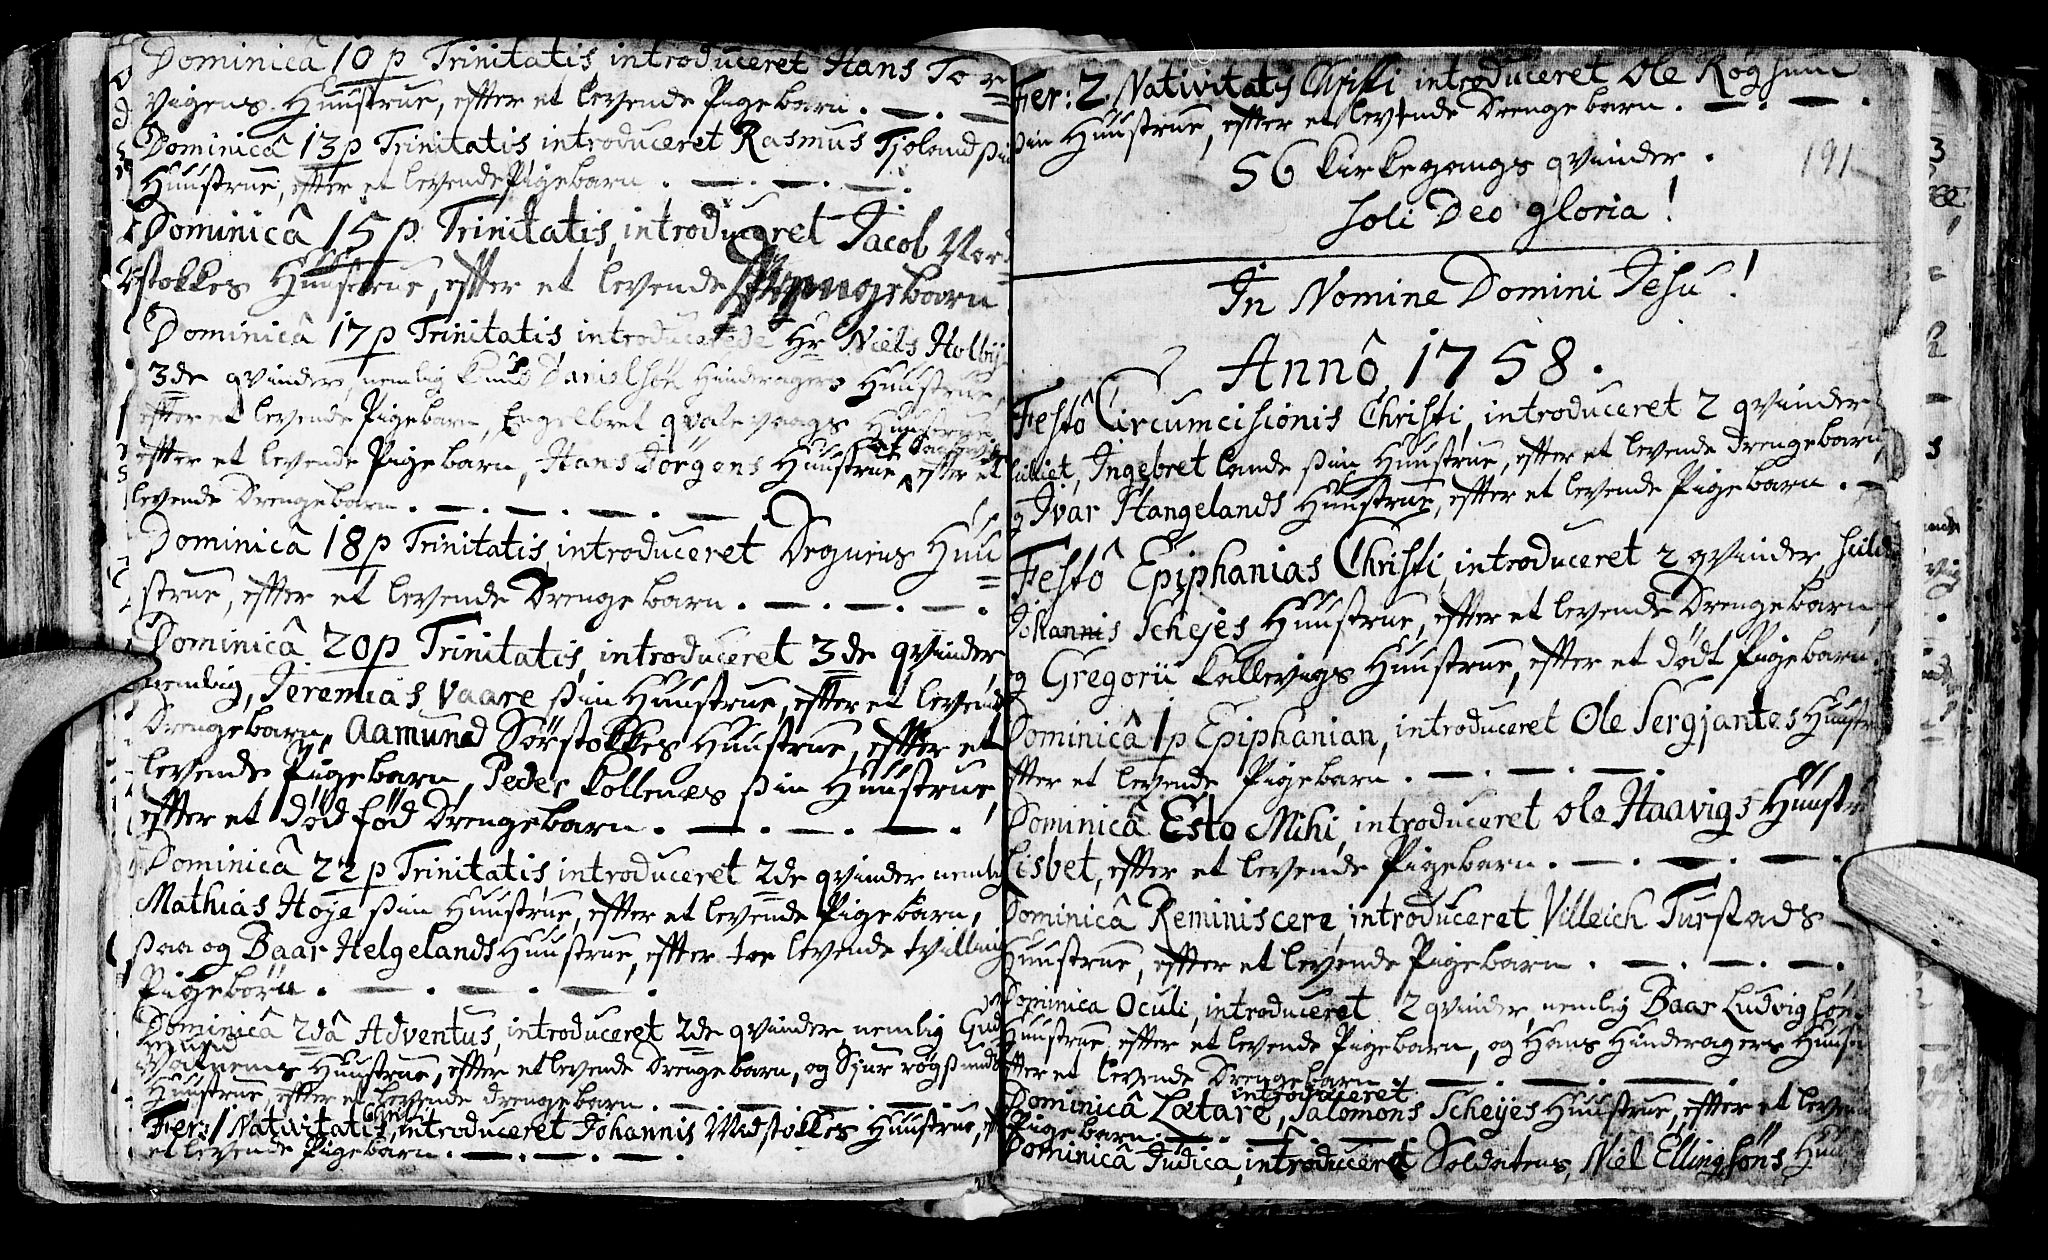 Dominicâ 10 p Trinitatis introduceret Hans Tor=
vigens Huustrue, efter et levende Pigebarn. —. —
Dominicâ 13 p Trinitatis introduceret Rasmus Tjoland sin
Huustrue, efter et levende Pigebarn. —. —. —.
Dominicâ 15 p. Trinitatis, introduceret Jacob Nor=
stokkes Huustrue, efter et levende Drengebarn
Dominicâ 17 p Trinitatis introducerede Hr Niels Holbye
3de qvinder, nemlig Knud Danielsøn Hinderagers Huustrue,
efter et levende Pigebarn, Engelbret qvalevaags Huustrue
efter et levende Pigebarn, Hans Jörgens Huustrue, efter et
levende Drengebarn. —. —. —. —.
Dominicâ 18 p Trinitatis, introduceret Degnens Huu=
strue, efter et levende Drengebarn. —. —. —.
Dominicâ 20 p Trinitatis, introduceret 3de qvinder,
nemlig, Jeremias Vaare sin Huustrue, efter et levende
Drengebarn, Aamund Sörstokkes Huustrue, efter et
levende Pigebarn, Peder Kollenæs sin Huustrue,
efter et död född Drengebarn. —. —. —.
Dominicâ 22 p Trinitatis, introduceret 2de qvinder nemlig
Mathias Hoje sin Huustrue, efter et levende Pigebarn,
saa og Baar Helgelands Huustrue, efter toe levende tvilling
Pigebörn. —. —. —.
Dominicâ 2dâ Adventus, introduceret 2de qvinder, nemlig Gud
mund
Vatnems Huustrue, efter et levende Drengebarn, og Siur rögsunds
Huustrue, efter et levende drengebarn. —. —. —. —.
Fer: 1 Nativitatis Christi, introduceret Johannis Midstokkes Huustrue, eft
et levende Pigebarn. —. —. —.
Fer: 2 Nativitatis Christi, introduceret Ole Røgsund
sin Huustrue, efter et levende Drengebarn. —. —.
56 Kirkegangs qvinder.
191
Soli Deo gloria!
In Nomine Domini Jesu!
Annô 1758.
Festô Circumcisionis Christi, introduceret 2 qvinder,
Ingebret lande sin Huustrue, efter et levende drengebarn,
og Ivar Stangelands Huustrue, efter et levende Pigebarn. —
Festô Epiphanias Christi, introduceret 2 qvinder,
Johannis Schejes Huustrue, efter et levende Drengebarn,
og Gregorii Kallevigs Huustrue, efter et dödt Pigebarn.
Dominicâ 1 p Epiphanian, introduceret Ole Sergjantes Huustru
efter et levende Pigebarn. —. —. —.
Dominicâ Esto Mihi, introduceret Ole Haavigs Huustr
Lisbet, efter et levende Pigebarn. —. —. —.
Dominicâ Reminiscere, introduceret Villeich Turstads —
Huustrue, efter et levende Pigebarn. —. —. —.
Dominica Oculi, introduceret 2 qvinder, nemlig Baar Ludvigsøns
Huustrue, efter et levende Pigebarn, og Hans Hinderagers Huus
efter et levende Drengebarn. —. —. —.
introduceret
Dominicâ Lætare, Salomons Schejes Huustrue, efter et leven
Pigebarn. —. —. —.
Dominicâ Judica, introduceret Soldatens, Niel Ellingsöns Huu